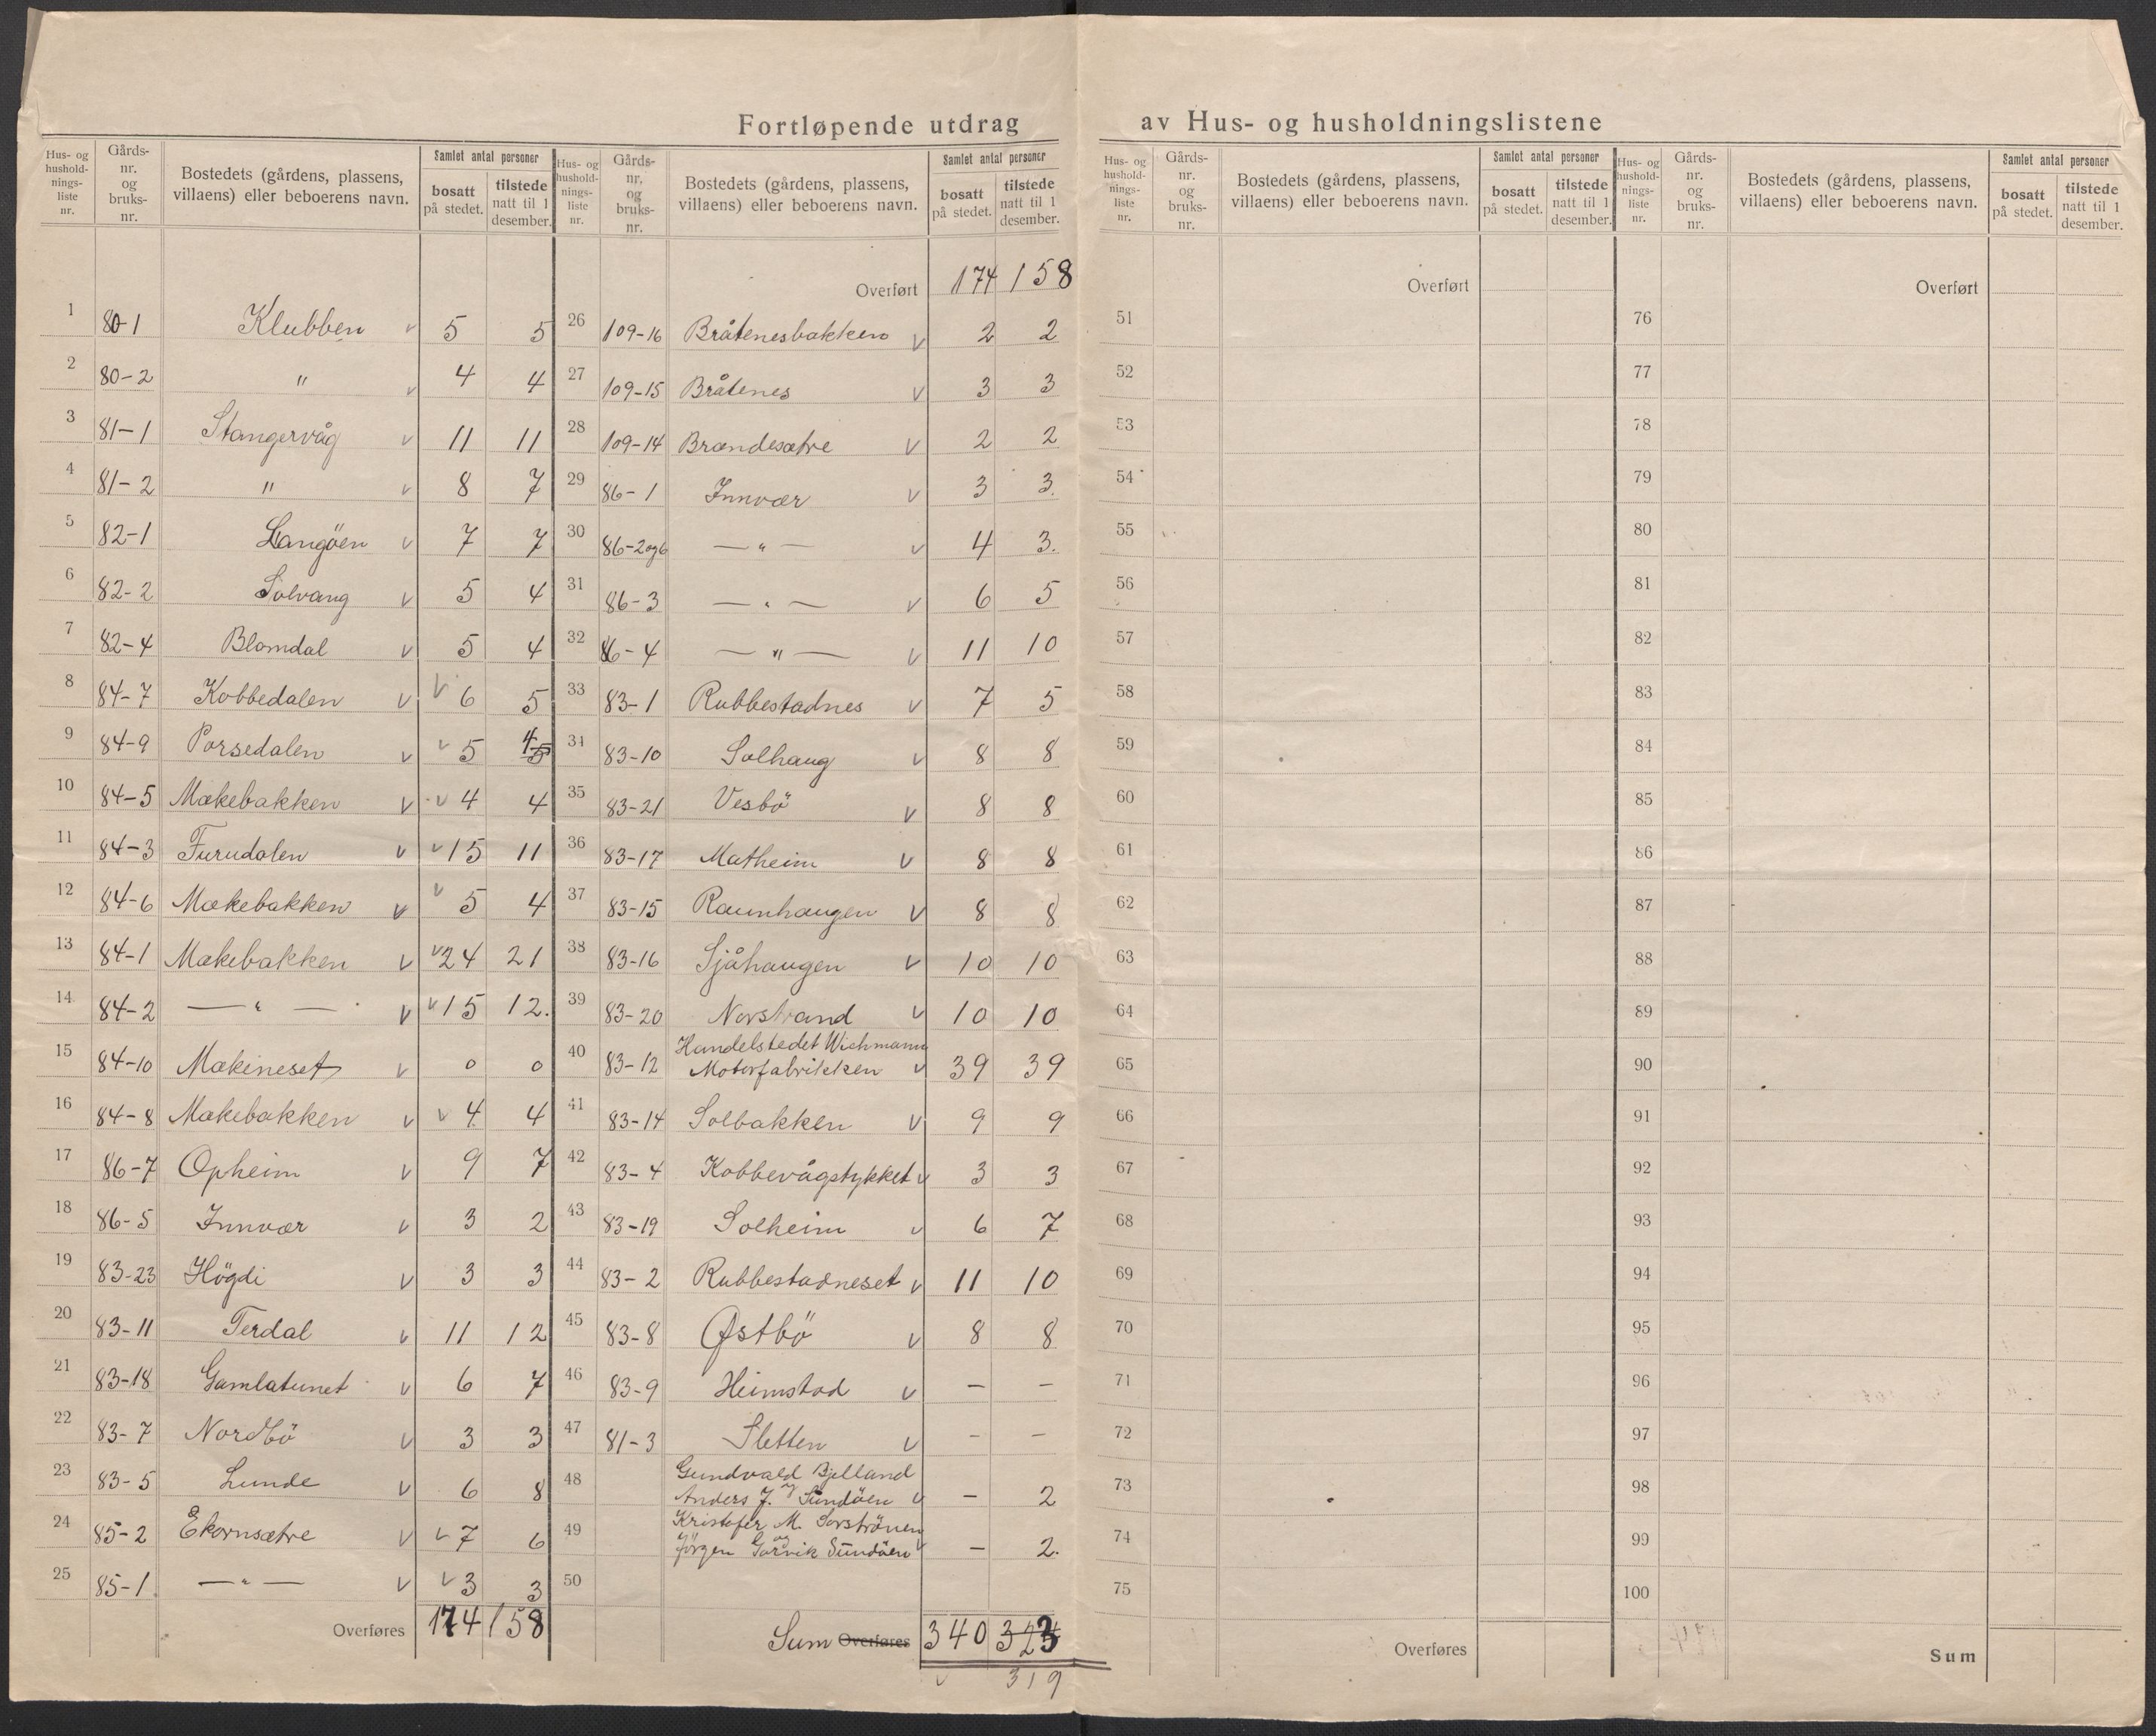 Fortløpende utdrag av Hus- og husholdningslistene
Hus- og hushold-nings-liste nr. | Gårds-nr. og bruks-nr. | Bostedets (gårdens, plassens, villaens) eller beboerens navn. | Samlet antal personer | bosatt på stedet. | tilstede natt til 1 desember.
1 80-1 Klubben v 5 5
2 80-2 " v 4 4
3 81-1 Stangervåg v 11 11
4 81-2 " v 8 7
5 82-1 Langöen v 7 7
6 82-2 Solvang v 5 4
7 82-4 Blomdal v 5 4
8 84-7 Kobbedalen v v 6 5
9 84-9 Porsedalen v v 5 4 5
10 84-5 Mækebakken v v 4 4
11 84-3 Furudalen v v 15 11
12 84-6 Mækebakken v v 5 4
13 84-1 Mækebakken v v 24 21
14 84-2 — " — v v 15 12.
15 84-10 Mækineset v 0 0
16 84-8 Mækebakken v v 4 4
17 86-7 Opheim v 9 7
18 86-5 Innvær v 3 2
19 83-23 Högdi v 3 3
20 83-11 Terdal v 11 12
21 83-18 Gamlatunet v 6 7
22 83-7 Nordbö v 3 3
23 83-5 Lunde v 6 8
24 85-2 Ekornsætre v v 7 6
25 85-1 — " — v v 3 3
Overføres 174 158
Hus- og hushold-nings-liste nr. | Gårds-nr. og bruks-nr. | Bostedets (gårdens, plassens, villaens) eller beboerens navn. | Samlet antal personer | bosatt på stedet. | tilstede natt til 1 desember.
Overført 174 158
26 109-16 Bråtenesbakken v 2 2
27 109-15 Bråtenes v 3 3
28 109-14 Brandesætre v 2 2
29 86-1 Innvær v 3 3.
30 86-2og6 — " — v 4 3.
31 86-3 — " — v 6 5
32 86-4 — " — v 11 10
33 83-1 Rubbestadnes v 7 5
34 83-10 Solhaug v 8 8
35 83-21 Vesbö v 8 8
36 83-17 Matheim v 8 8
37 83-15 Raunhaugen v 8 8
38 83-16 Sjåhaugen v 10 10
39 83-20 Norstrand v 10 10
40 83-12 Handelstedet Wichmann
Motorfabrikken v 39 39
41 83-14 Solbakken v 9 9
42 83-4 Kobbevågstykket v 3 3
43 83-19 Solheim v 6 7
44 83-2 Rubbestadneset v 11 10
45 83-8 Østbö v 8 8
46 83-9 Heimstad v — —
47 81-3 Sletten v - —
48 Gundvald Bjelland
Anders J. og Sundöen v — 2
49 Kristofer M. Sorströnen
og
Jörgen Gorvik Sundöen v — 2.
50
Sum Overføres 340 323
v 319
Hus- og hushold-nings-liste nr. | Gårds-nr. og bruks-nr. | Bostedets (gårdens, plassens, villaens) eller beboerens navn. | Samlet antal personer | bosatt på stedet. | tilstede natt til 1 desember.
Overført
51
52
53
54
55
56
57
58
59
60
61
62
63
64
65
66
67
68
69
70
71
72
73
74
75
Overføres
Hus- og hushold-nings-liste nr. | Gårds-nr. og bruks-nr. | Bostedets (gårdens, plassens, villaens) eller beboerens navn. | Samlet antal personer | bosatt på stedet. | tilstede natt til 1 desember.
Overført
76
77
78
79
80
81
82
83
84
85
86
87
88
89
90
91
92
93
94
95
96
97
98
99
100
Sum